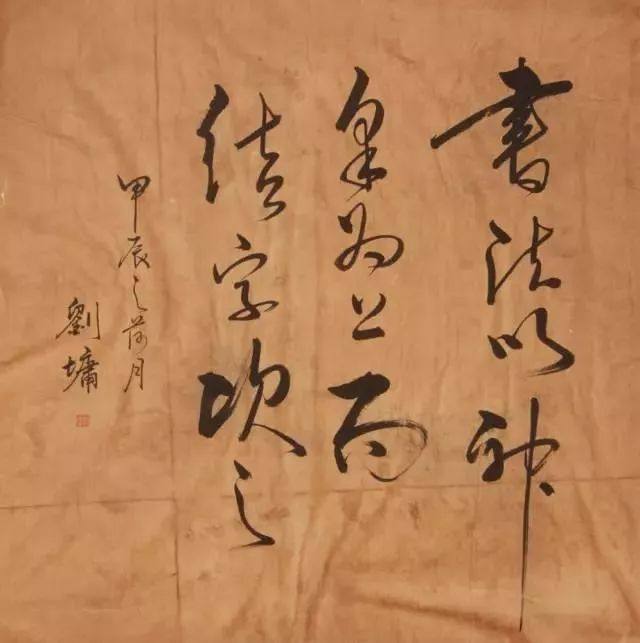 書法以神
采為上而
結字次之
甲辰之荷月
劉墉